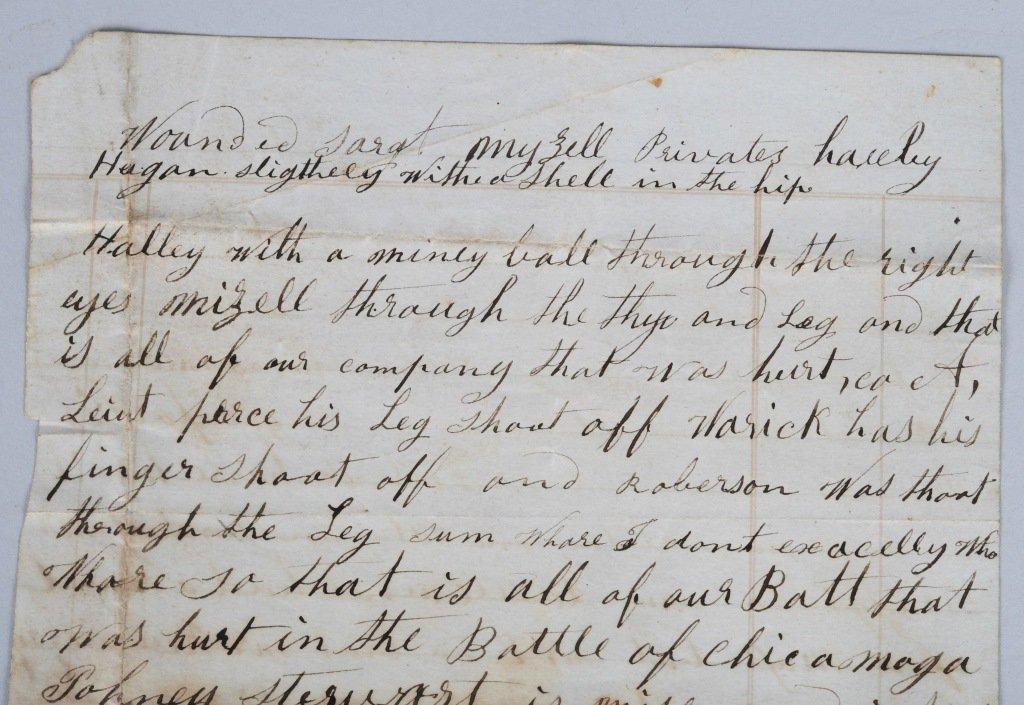 Wounded Sargt Myzell Privates haceley
Hagan. sligthely With a Shell in the hip
Halley with a miney ball through the right
eyes Mizell through the thye and Leg and that
is all of our company that was hurt, co A,
Leiut perce his Leg shoot off Warick has his
finger shoot off and Roberson was shoot
through the Leg sum whare I dont exacelly
Whare so that is all of our Batt that
was hurt in the Battle of chicamoga
Johney sterwart is